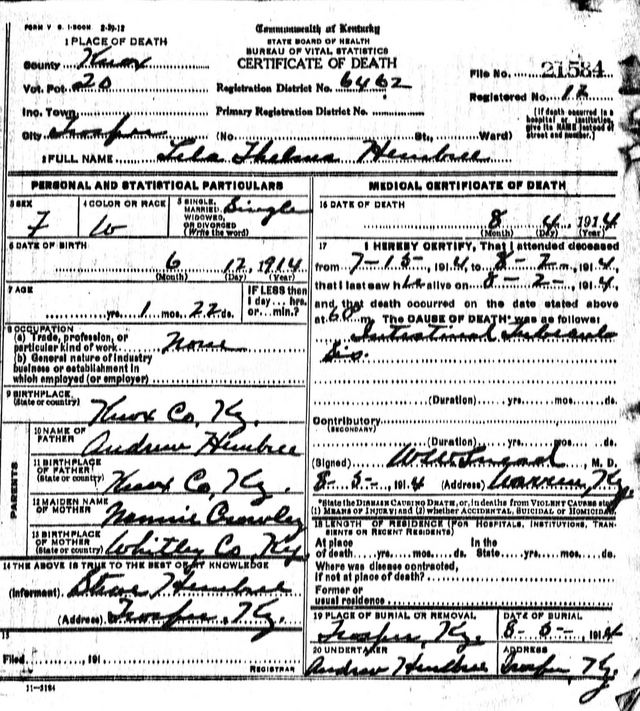 FORM V S. 1-500M 2-20-12
Commonwealth of Kentucky
STATE BOARD OF HEALTH
BUREAU OF VITAL STATISTICS
CERTIFICATE OF DEATH
1 PLACE OF DEATH
County Knox
Vot. Pct. 20
Registration District No. 6462
File No. 21584
Inc. Town
Primary Registration District No.
Registered No. 12
City Trosper (No. St., Ward)
[If death occurred in a hospital or institution, give its NAME instead of street and number.]
2 FULL NAME Lela Thelma Hembree
PERSONAL AND STATISTICAL PARTICULARS
3 SEX F
4 COLOR OR RACE W
5 SINGLE, MARRIED, WIDOWED, OR DIVORCED (Write the word) Single
6 DATE OF BIRTH
6 12, 1914
(Month) (Day) (Year)
7 AGE
yrs. 1 mos. 22 ds.
IF LESS then 1 day... hrs. or min.?
8 OCCUPATION
(a) Trade, profession, or particular kind of work None
(b) General nature of industry
business or establishment in
which employed (or employer)
9 BIRTHPLACE
(State or country) Knox Co, Ky.
PARENTS
10 NAME OF FATHER Andrew Hembree
11 BIRTHPLACE OF FATHER
(State or country) Knox Co, Ky.
12 MAIDEN NAME OF MOTHER Nannie Crowley
13 BIRTHPLACE OF MOTHER
(State or country) Whitley Co Ky
14 THE ABOVE IS TRUE TO THE BEST OF MY KNOWLEDGE
(Informant) Steve Hembree
(Address) Trosper, Ky.
15
Filed , 191
REGISTRAR
11-3184
MEDICAL CERTIFICATE OF DEATH
16 DATE OF DEATH
8 4, 1914
(Month) (Day) (Year)
17 I HEREBY CERTIFY, That I attended deceased
from 7-15-, 1914, to 8-2-, 1914,
that I last saw h alive on 8-2-, 1914,
and that death occurred on the date stated above
at m. The CAUSE OF DEATH* was as follows:
Intestinal
(Duration) yrs. mos. ds.
Contributory
(SECONDARY)
(Duration) yrs. mos. ds.
(Signed) , M. D.
8-5-, 1914 (Address) Warren, Ky.
*State the DISEASE CAUSING DEATH, or, in deaths from VIOLENT CAUSES state
(1) MEANS OF INJURY; and (2) whether ACCIDENTAL, SUICIDAL or HOMICIDAL
18 LENGTH OF RESIDENCE (FOR HOSPITALS, INSTITUTIONS, TRANSIENTS OR RECENT RESIDENTS)
At place of death yrs. mos. ds.
In the State yrs. mos. ds.
Where was disease contracted,
if not at place of death?
Former or
usual residence
19 PLACE OF BURIAL OR REMOVAL
Trosper, Ky.
DATE OF BURIAL
8-5-, 1914
20 UNDERTAKER
Andrew Hembree
ADDRESS
Trosper, Ky.